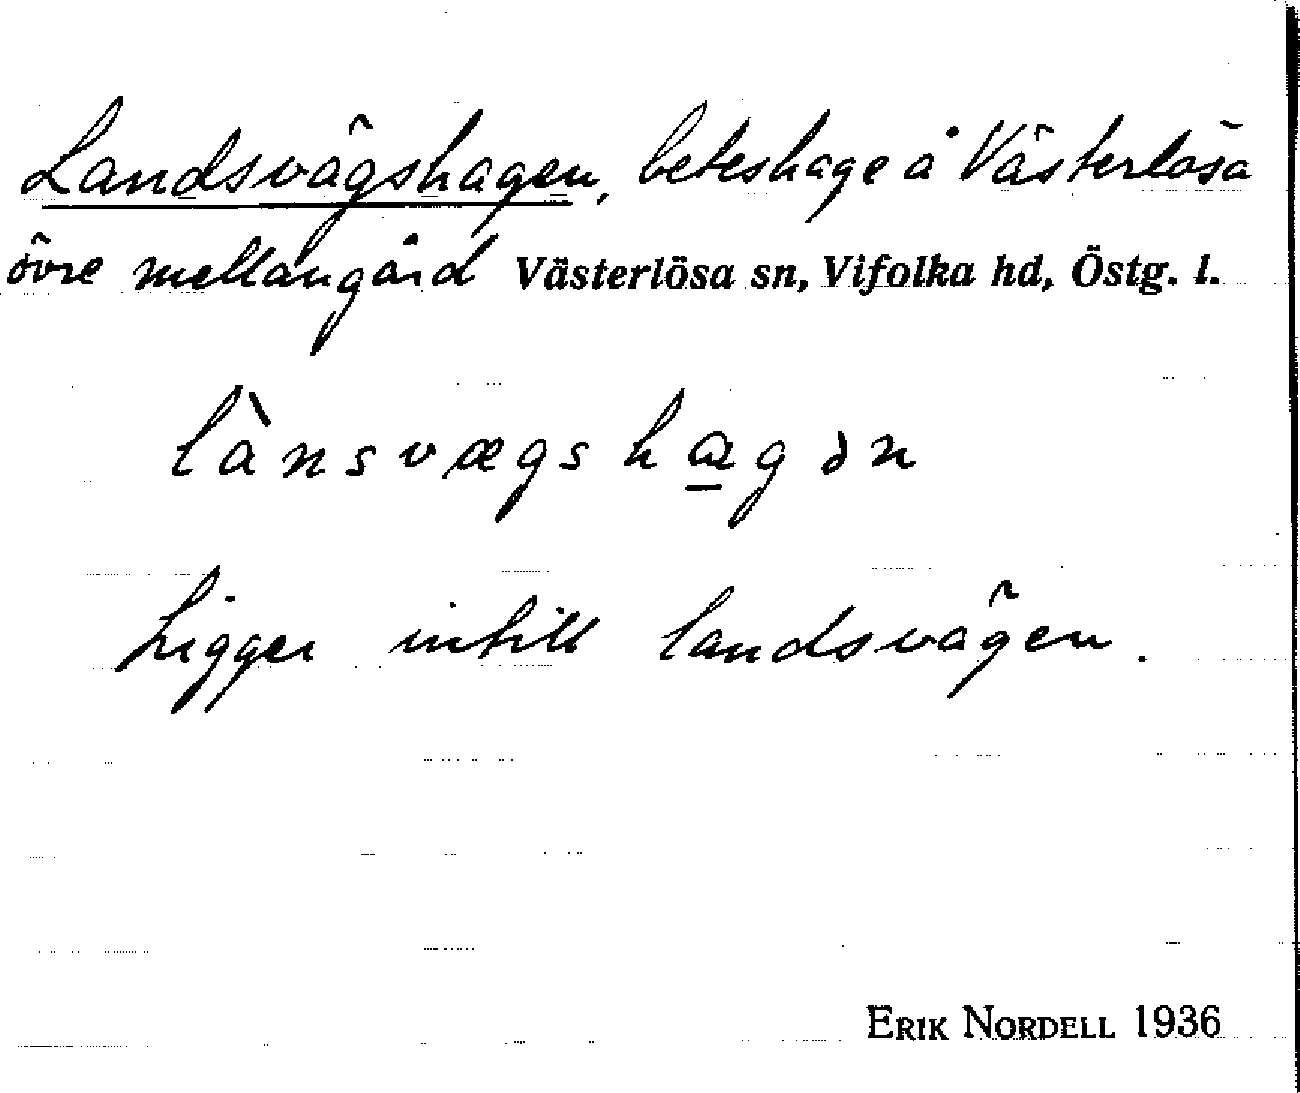 Landsvägshagen, beteshage å Västerlösa
övre mellangård Västerlösa sn, Vifolka hd, Östg. l.
lànsvægshagən
Ligger intill landsvägen.
ERIK NORDELL 1936